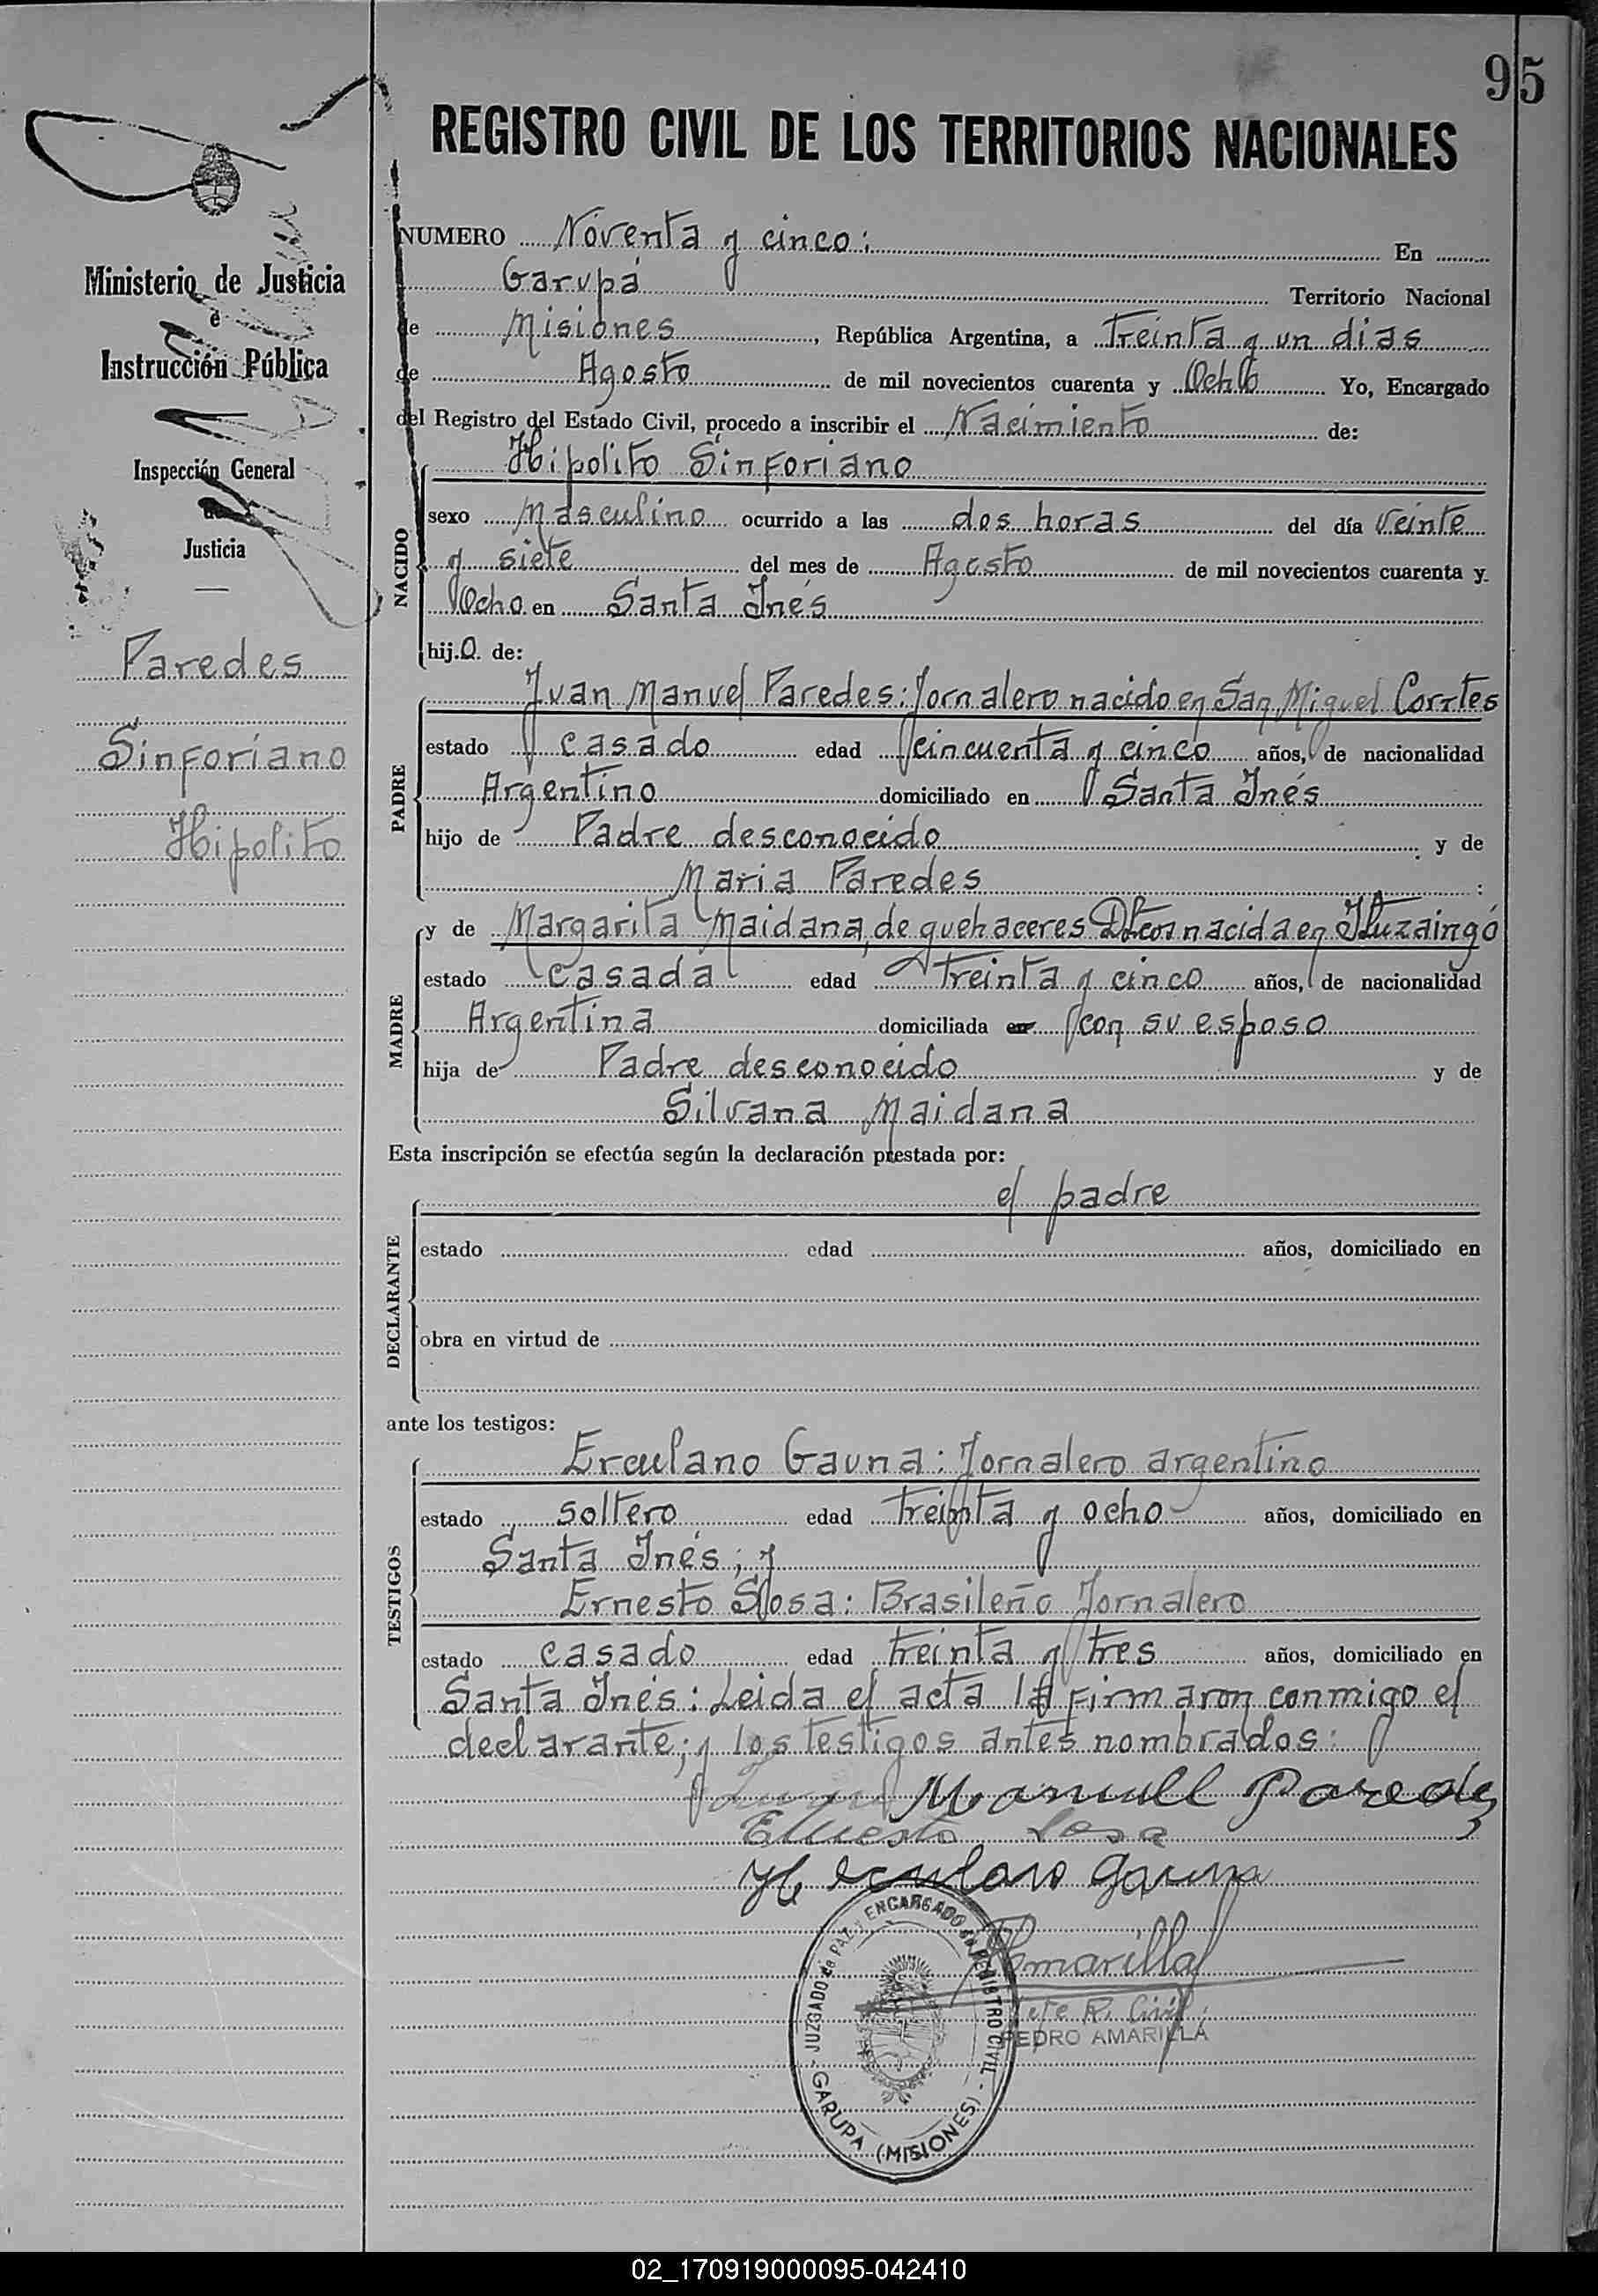 95
REGISTRO CIVIL DE LOS TERRITORIOS NACIONALES
Ministerio de Justicia
e
Instrucción Pública
Inspección General
de
Justicia
Paredes
Sinforiano
Hipolito
NUMERO Noventa y cinco: En
Garupá Territorio Nacional
de Misiones, República Argentina, a Treinta y un dias
de Agosto de mil novecientos cuarenta y Ocho Yo, Encargado
del Registro del Estado Civil, procedo a inscribir el Nacimiento de:
NACIDO
Hipolito Sinforiano
sexo Masculino ocurrido a las dos horas del día Veinte
y siete del mes de Agosto de mil novecientos cuarenta y
Ocho en Santa Inés
hijo de:
PADRE
Juan Manuel Paredes: Jornalero nacido en San Miguel Corrtes
estado casado edad cincuenta y cinco años, de nacionalidad
Argentino domiciliado en Santa Inés
hijo de Padre desconocido y de
Maria Paredes :
MADRE
y de Margarita Maidana, de quehaceres Dtcos nacida en Ituzaingó
estado casada edad treinta y cinco años, de nacionalidad
Argentina domiciliada en con su esposo
hija de Padre desconocido y de
Silvana Maidana
Esta inscripción se efectúa según la declaración prestada por:
DECLARANTE
el padre
estado edad años, domiciliado en
obra en virtud de
ante los testigos:
TESTIGOS
Erculano Gauna: Jornalero argentino
estado soltero edad treinta y ocho años, domiciliado en
Santa Inés; y
Ernesto Sosa: Brasileño Jornalero
estado casado edad treinta y tres años, domiciliado en
Santa Inés: Leida el acta la firmaron conmigo el
declarante; y los testigos antes nombrados:
Juan Manuell Paredes
Ernesto Sosa
Herculano Gauna
PAmarilla
Jefe R. Civil.
PEDRO AMARILLA
JUZGADO de PAZ y ENCARGADO del REGISTRO CIVIL - GARUPA (MISIONES) -
02_170919000095-042410